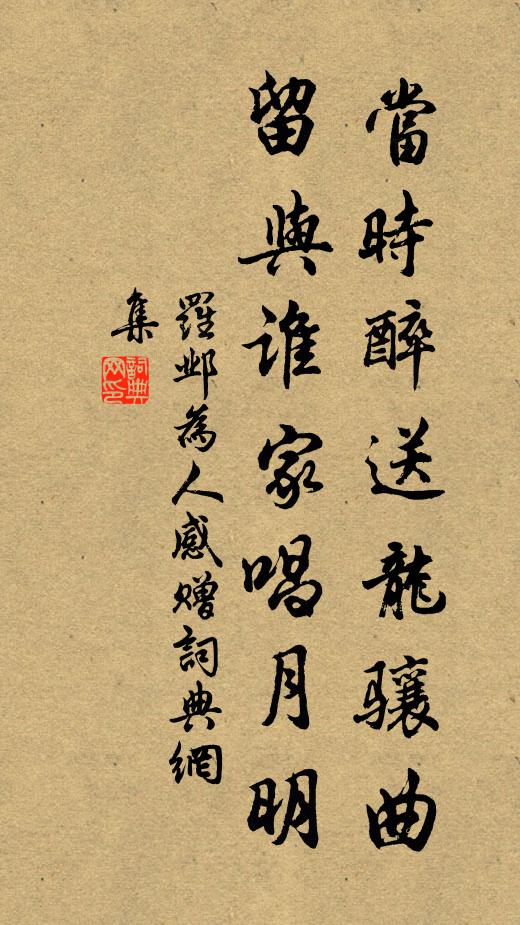 當時醉送龍驤曲
留與誰家唱月明
羅鄴為人感贈詞典網
集
詞典
网印